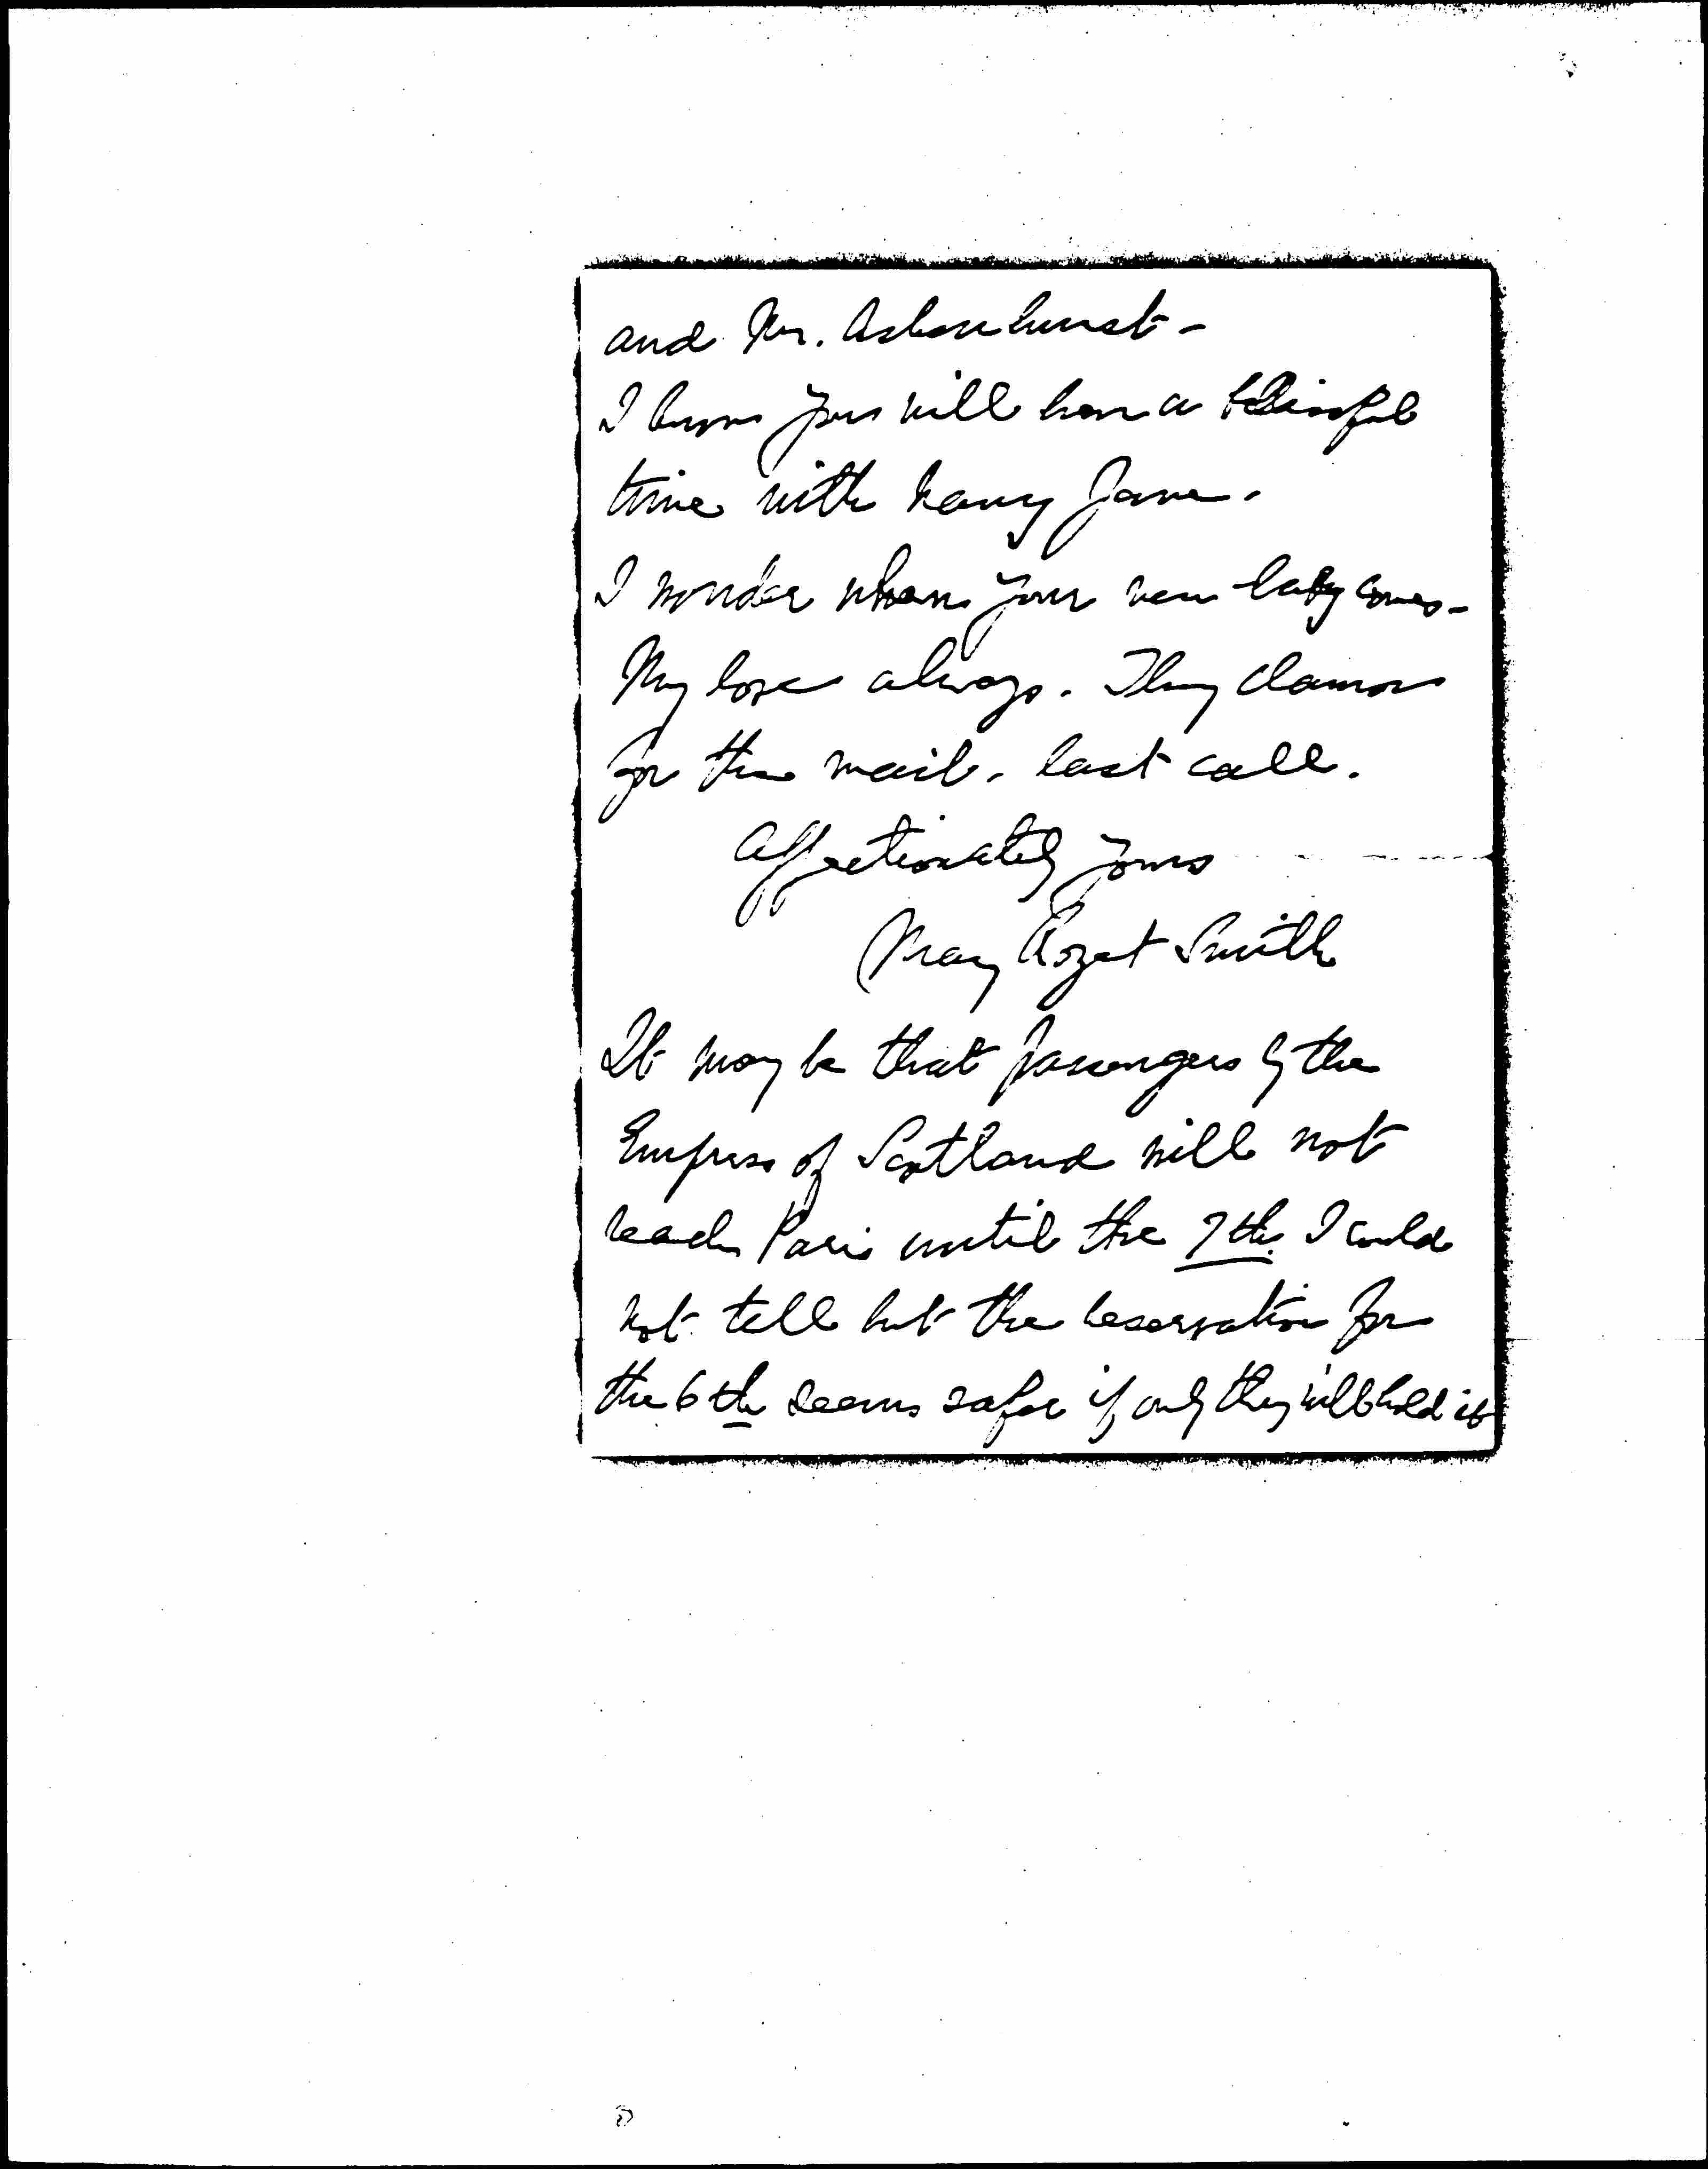 and Mr. Ashenhurst -
I know you will have a blissful
time with Nancy Jane.
I wonder when your new baby comes -
My love always. They clamor
for the mail. last call.
Affectionately yours
Mary Rozet Smith
It may be that passengers by the
Empress of Scotland will not
reach Paris until the 7th. I could
not tell but the reservation for
the 6th seems safer if only they will hold it